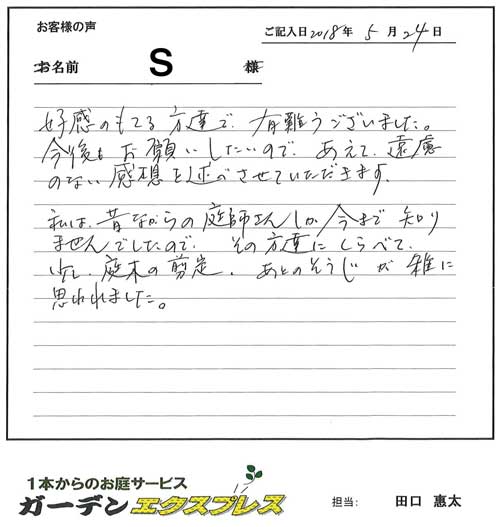 お客様の声
ご記入日2018年 5月24日
お名前 S 様
好感のもてる方達で、有難うございました。
今後もお願いしたいので、あえて、遠慮
のない感想を述べさせていただきます。
私は、昔ながらの庭師さんしか今まで知り
ませんでしたので、その方達にしらべて、
少し、庭木の剪定、あとのそうじが雑に
思われました。
1本からのお庭サービス
ガーデンエクスプレス
担当: 田口 惠太